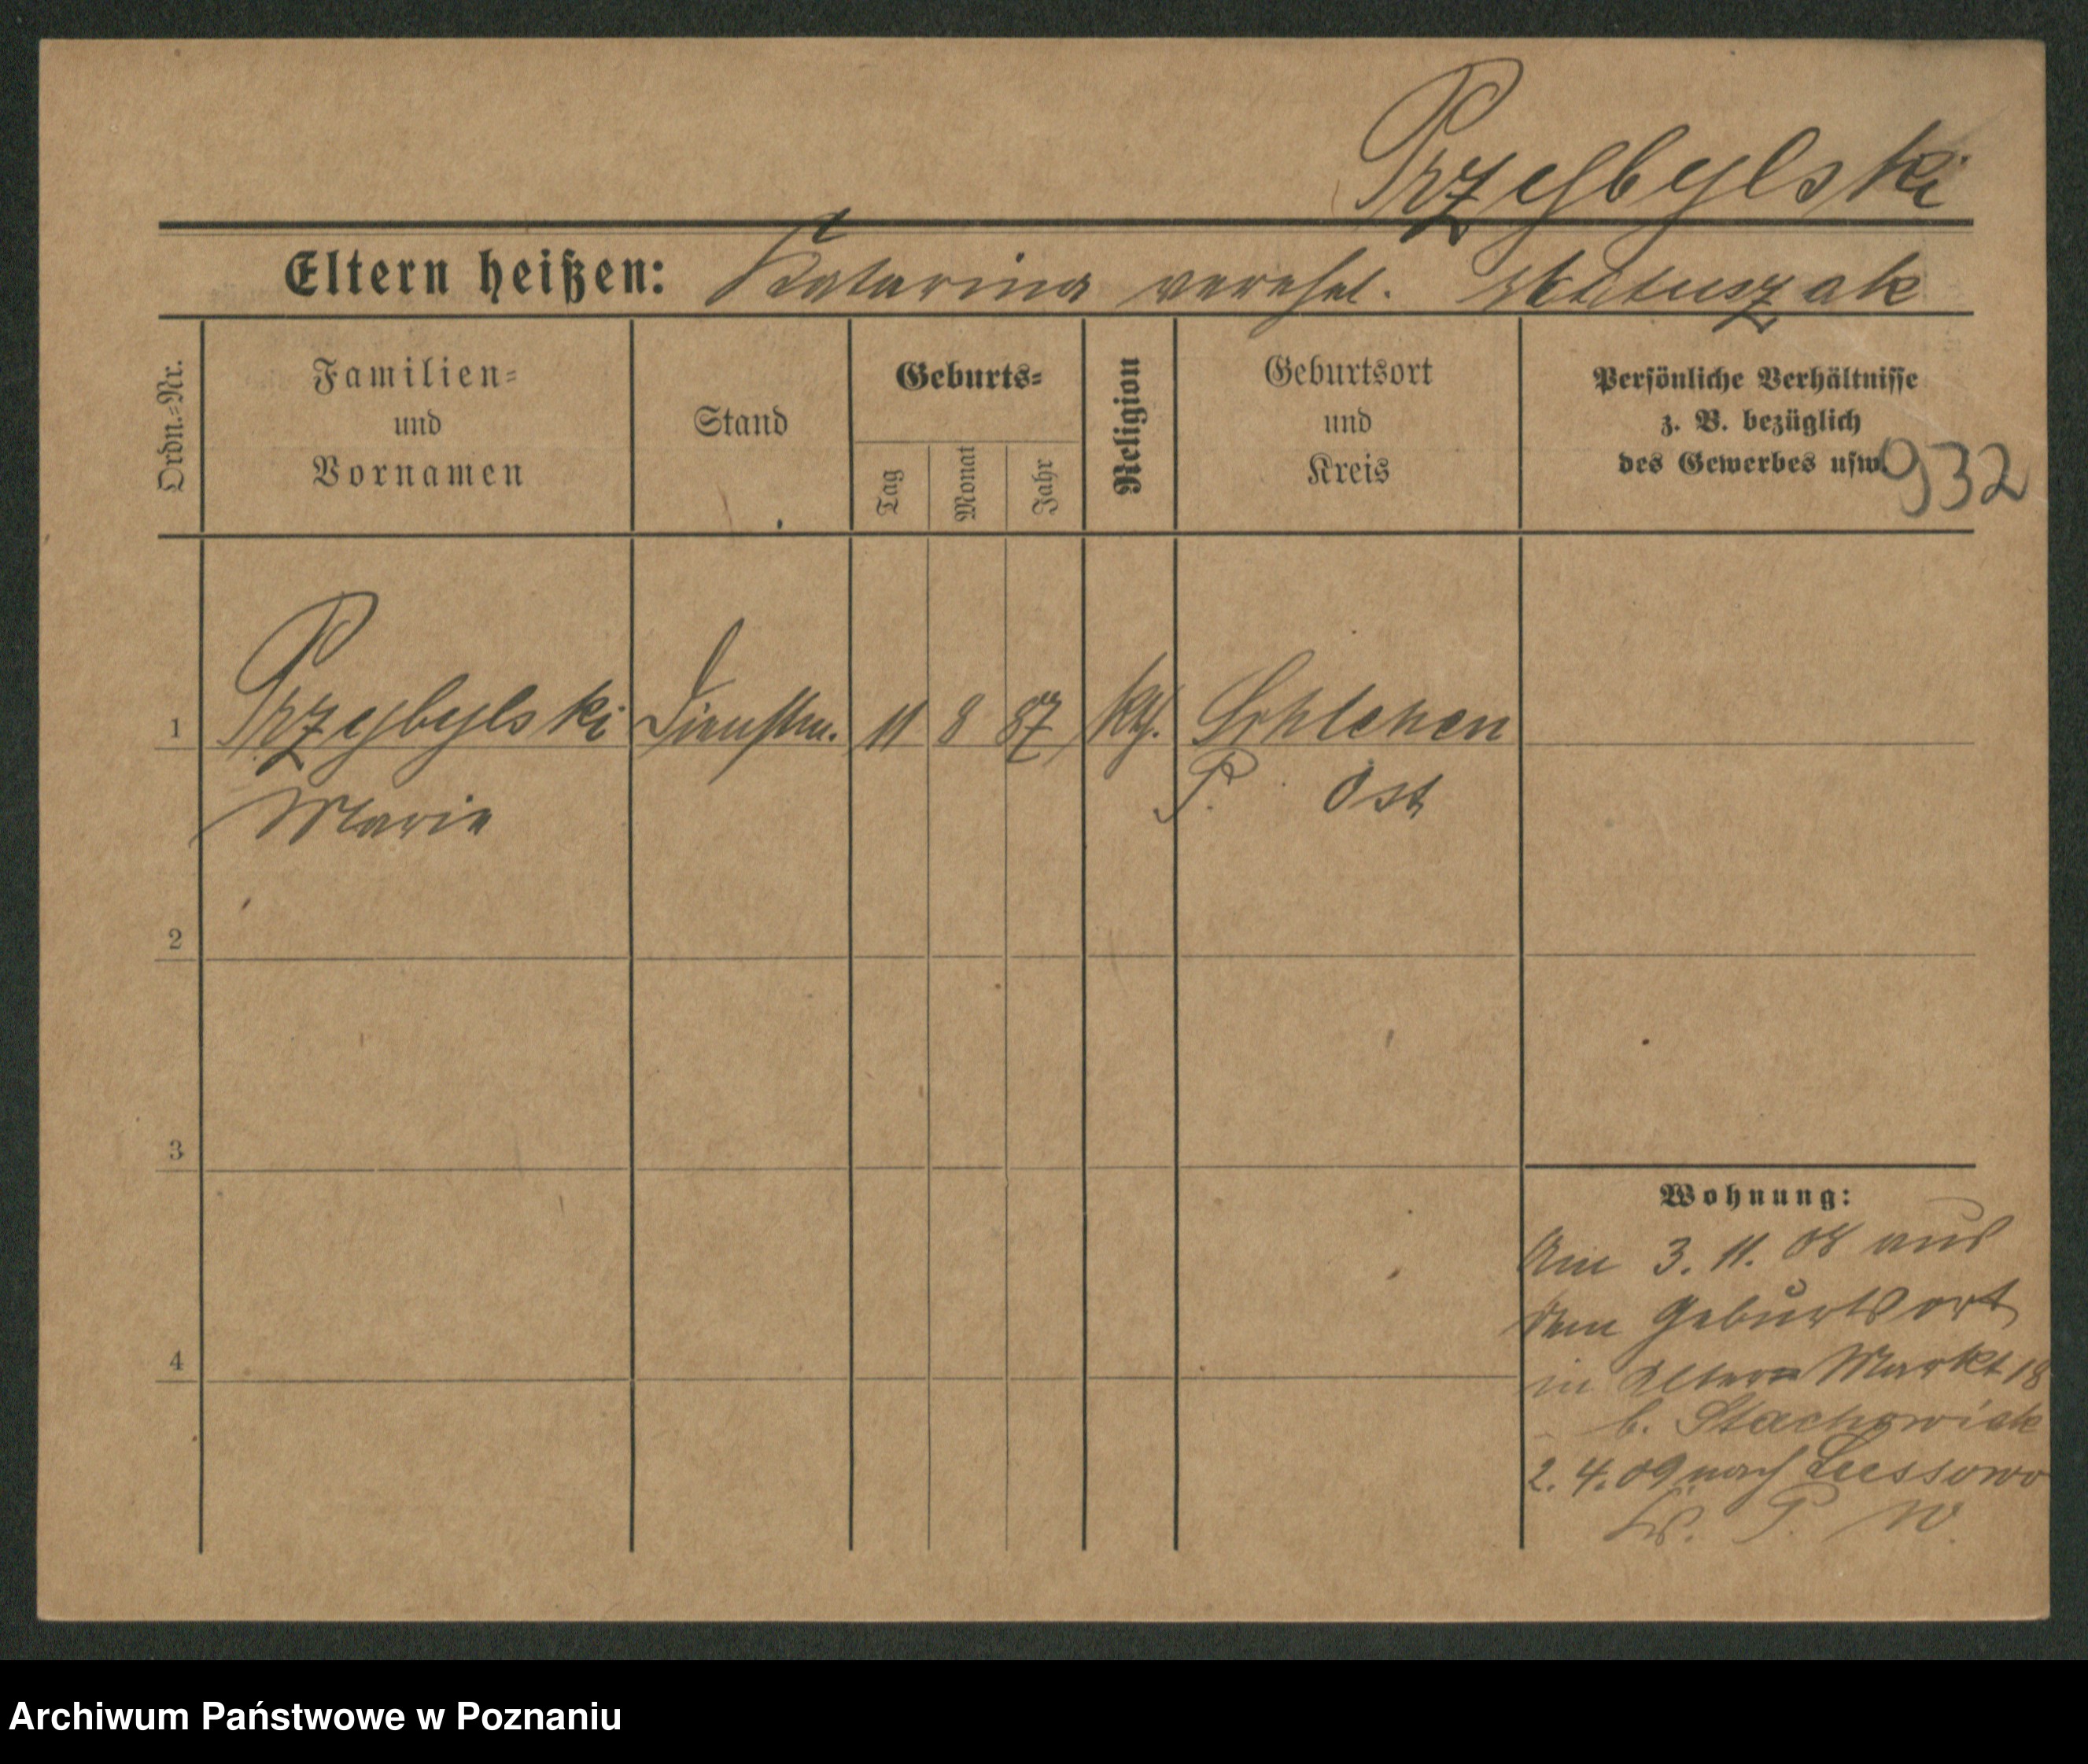 Przybylski
Eltern heißen: Katarina verehel. Matuszak
Ordn.=Nr.
Familien=
und
Vornamen
Stand
Geburts=
Tag
Monat
Jahr
Religion
Geburtsort
und
Kreis
Persönliche Verhältnisse
z. B. bezüglich
des Gewerbes usw.
932
1 Przybylski Dienstm. 11 8 87 kth. Schlehen
Marie P. Ost
2
3
4
Wohnung:
Am 3. 11. 08 aus
dem Geburtsort
in Alter Markt 18
b. Stachowiak
2. 4. 09 nach Lussowo
P. W.
Archiwum Państwowe w Poznaniu